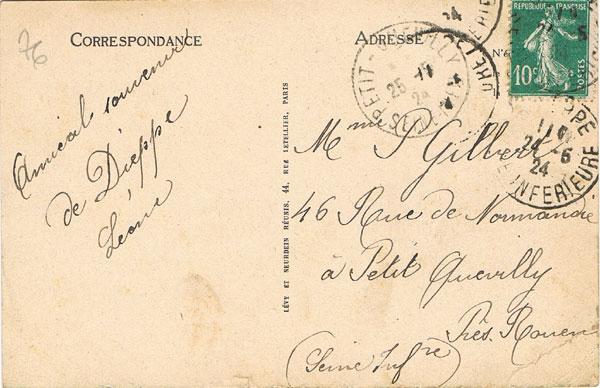 76
CORRESPONDANCE
Amical souvenir
de Dieppe
Léone
LÉVY ET NEURDEIN RÉUNIS, 44, RUE LETELLIER, PARIS
ADRESSE
RÉPUBLIQUE FRANÇAISE
10c
POSTES
PETIT-QUEVILLY
25
24
SEINE-INFRE
24-5
24
INFERIEURE
Mme P Gilbert
46 Rue de Normandie
à Petit Quevilly
Près Rouen
(Seine Infre)